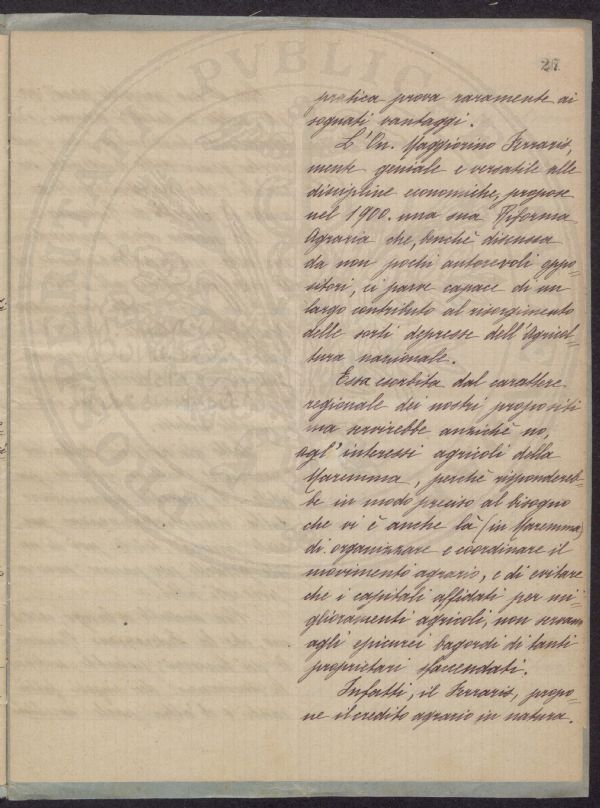 27
pratica prova raramente ai
sognati vantaggi.
L'On. Maggiorino Ferraris,
mente geniale e versatile alle
discipline economiche, propose
nel 1900. una sua Riforma
Agraria che, benchè discussa
da non pochi autorevoli oppo=
sitori, ci parve capace di un
largo contributo al risorgimento
delle sorti depresse dell'Agricol=
tura nazionale.
Essa esorbita dal carattere
regionale dei nostri propositi
ma servirebbe anzichè no,
agl'interessi agricoli della
Maremma, perchè rispondereb=
be in modo preciso al bisogno
che vi è anche là (in Maremma)
di organizzare e coordinare il
movimento agrario, e di evitare
che i capitali affidati per mi=
glioramenti agricoli, non servano
agli epicurei bagordi di tanti
proprietari sfaccendati.
Infatti, il Ferraris, propo=
ne il credito agrario in natura.